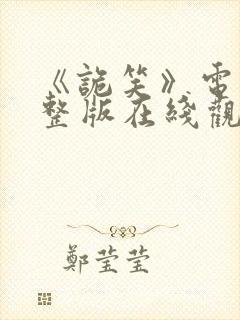 《詭笑》電
整版在綫觀
鄭莹莹